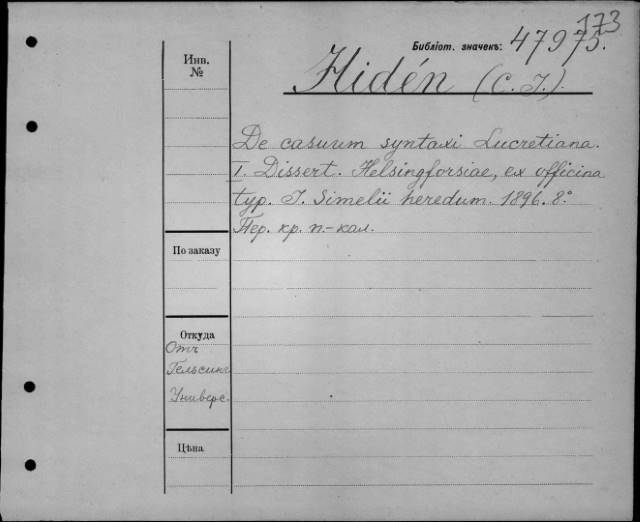 173
Библіот. значекъ: 47975.
Инв.
№
Hidén (C. J.).
De casuum syntaxi Lucretiana.
I. Dissert. Helsingforsiae, ex officina
typ. J. Simelii heredum. 1896. 8.°
Пер. кр. п.-кал.
По заказу
Откуда
Отъ
Гельсинг.
Универс.
Цѣна